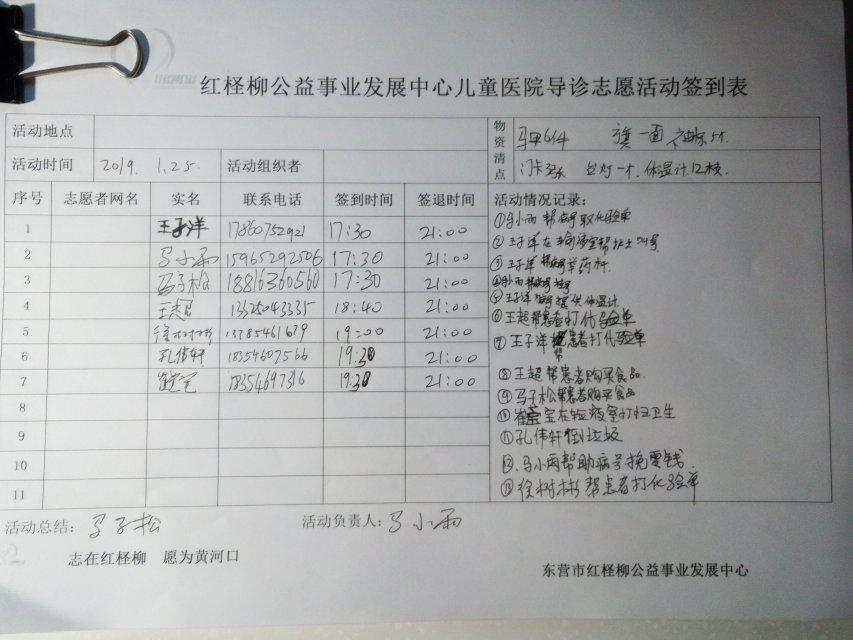 红柽柳公益事业发展中心儿童医院导诊志愿活动签到表
活动地点
物资清点 马甲6件 旗一面
活动时间 2019. 1.25. 活动组织者
台灯一个. 体温计12枚.
序号 志愿者网名 实名 联系电话 签到时间 签退时间 活动情况记录:
1 王子洋 17860752921 17:30 21:00
2 马小雨 15965292506 17:30 21:00
3 马子松 18816360560 17:30 21:00
4 王超 13325043335 18:40 21:00
5 徐树彬 13785461679 19:00 21:00
6 孔伟轩 18354607566 19:30 21:00
7 崔宝 18354697316 19:30 21:00
8
9
10
11
①马小雨帮病号取化验单
②王子洋在输液室帮护士叫号
③王子洋帮病号举药杆.
④小雨
⑤王子洋 提供体温计
⑥王超帮患者打化验单
⑦王子洋帮患者打化验单
⑧王超帮患者购买食品
⑨马子松帮患者购买食品
⑩崔宝在输液室打扫卫生
⑪孔伟轩倒垃圾
⑫马小雨帮助病号换零钱
⑬徐树彬帮患者打化验单
活动总结: 马子松 活动负责人: 马小雨
志在红柽柳 愿为黄河口
东营市红柽柳公益事业发展中心